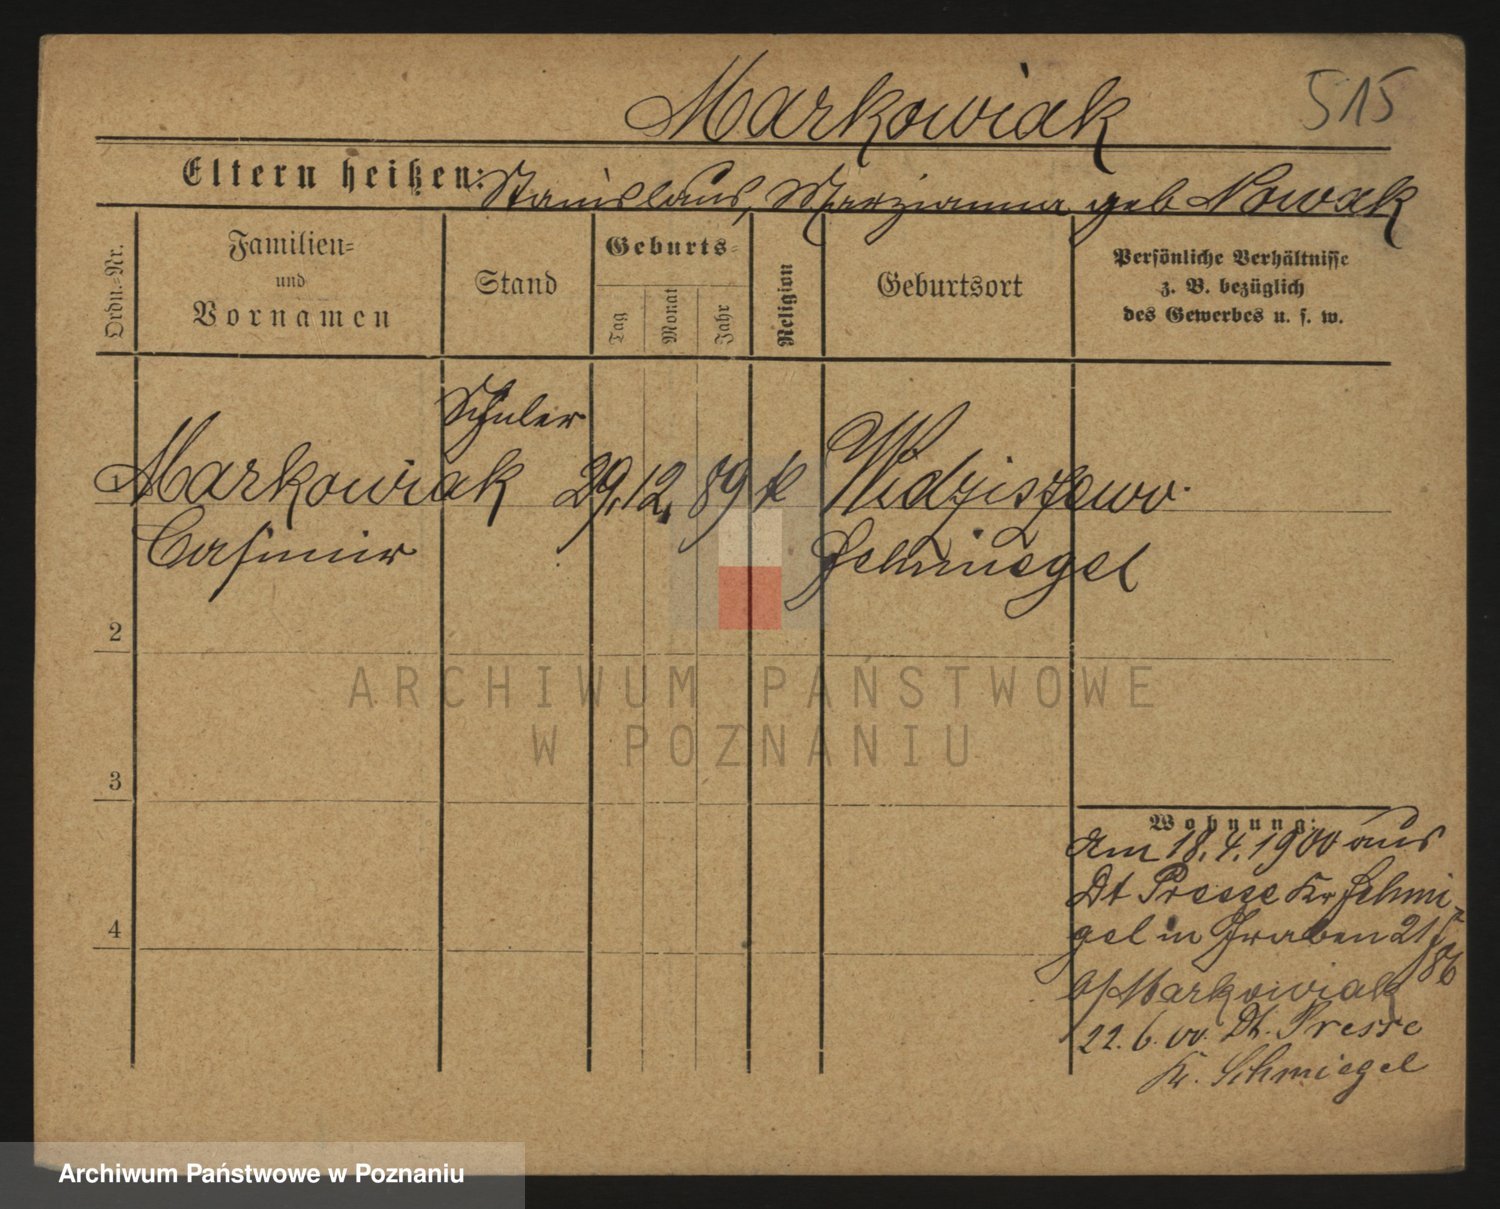 Markowiak 515
Eltern heißen: Stanislaus, Marzianna geb Nowak
Ordn.-Nr.
Familien-
und
Vornamen
Stand
Geburts-
Tag
Monat
Jahr
Religion
Geburtsort
Persönliche Verhältnisse
z. B. bezüglich
des Gewerbes u. s. w.
Schüler
Markowiak 29. 12. 89 k Widziszewo
Casimir Schmiegel
2
ARCHIWUM PAŃSTWOWE
W POZNANIU
3
Wohnung:
Am 18. 4. 1900 aus
Dt Presse Kr Schmie-
gel in Graben 21
b/Markowiak
22. 6. 00. Dt. Presse
Kr. Schmiegel
4
Archiwum Państwowe w Poznaniu